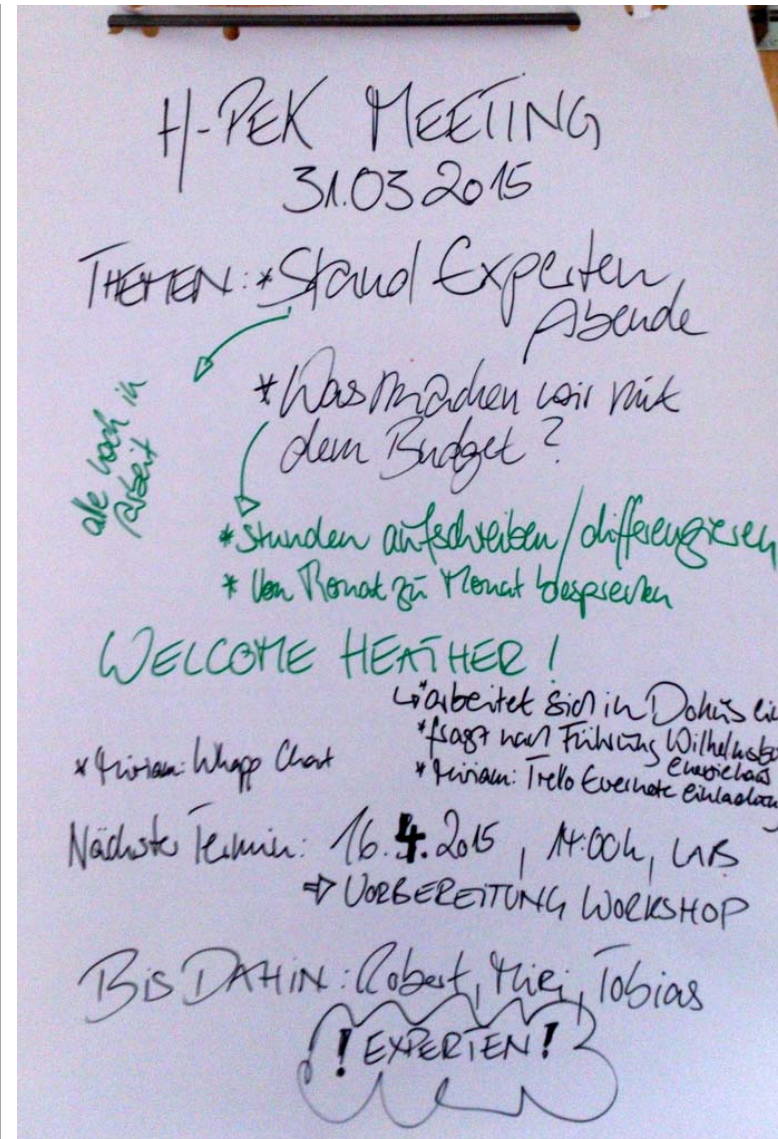 H-PEK MEETING
31.03 2015
THEMEN: * Stand Experten
Abende
alle noch in
Arbeit
* Was machen wir mit
dem Budget?
* Stunden aufschreiben / differenzieren
* Von Monat zu Monat besprechen
WELCOME HEATHER!
↳ * arbeitet sich in Dokus ein
* fragt nach Führung
* Miriam: Whapp Chat
* Miriam: Trello Evernote Einladung
Nächster Termin: 16.4.2015, 14:00h, LAB
⇨ VORBEREITUNG WORKSHOP
BIS DAHIN: Robert, Miri, Tobias
! EXPERTEN!